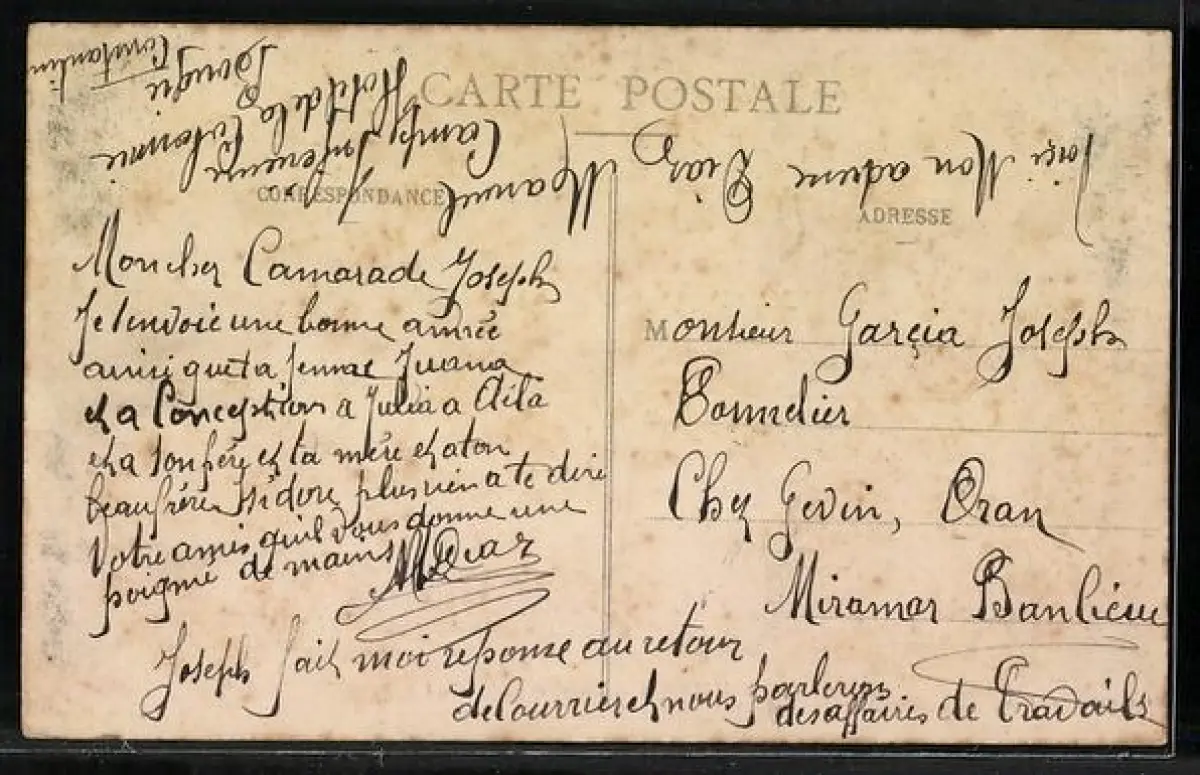 CARTE POSTALE
CORRESPONDANCE
ADRESSE
Voiçi Mon adresse
Manuel Diaz
Camp Inferieur
Hotel de la Colonie
Bougie
Constantin
Mon cher Camarade Joseph
Je t'envoie une bonne année
ainsi que ta femme Juana
et a Conception a Julia a Aila
et a son père et ta mère et a ton
beaufrère Isidore plus rien a te dire
Votre amis qu'il vous donne une
poignie de mains M Diaz
Joseph fait moi reponse au retour
de Courrier et nous parlerons
des affaires de Travails
Monsieur Garçia Joseph
Tonnelier
Chez Gevin, Oran
Miramar Banlieue